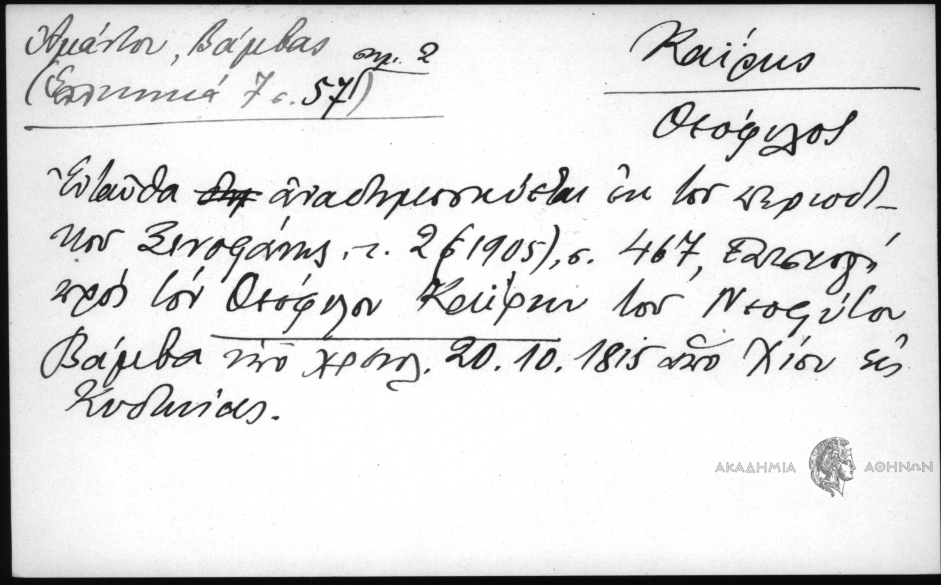 Ἀμάντου, Βάμβας σημ. 2
(Ἑλληνικά 7 σ. 57)
Καΐρης
Θεόφιλος
Ἐνταῦθα ἀναδημοσιεύεται ἐκ τοῦ περιοδι-
κοῦ Ξενοφάνης, τ. 2 (1905), σ. 467, ἐπιστολή
πρός τόν Θεόφιλον Καΐρην τοῦ Νεοφύτου
Βάμβα ὑπό χρονολ. 20.10.1815 ἀπό Χίου εἰς
Κυδωνίας.
ΑΚΑΔΗΜΙΑ ΑΘΗΝΩΝ